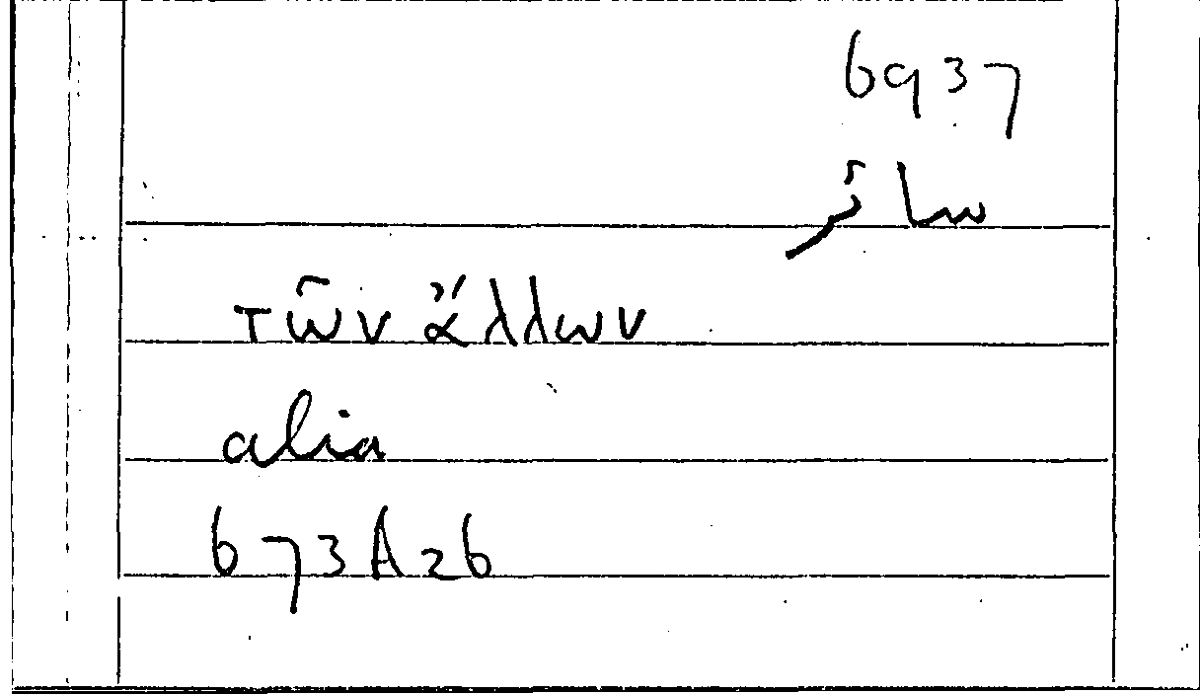 6937
سائر
τῶν ἄλλων
alia
673A26